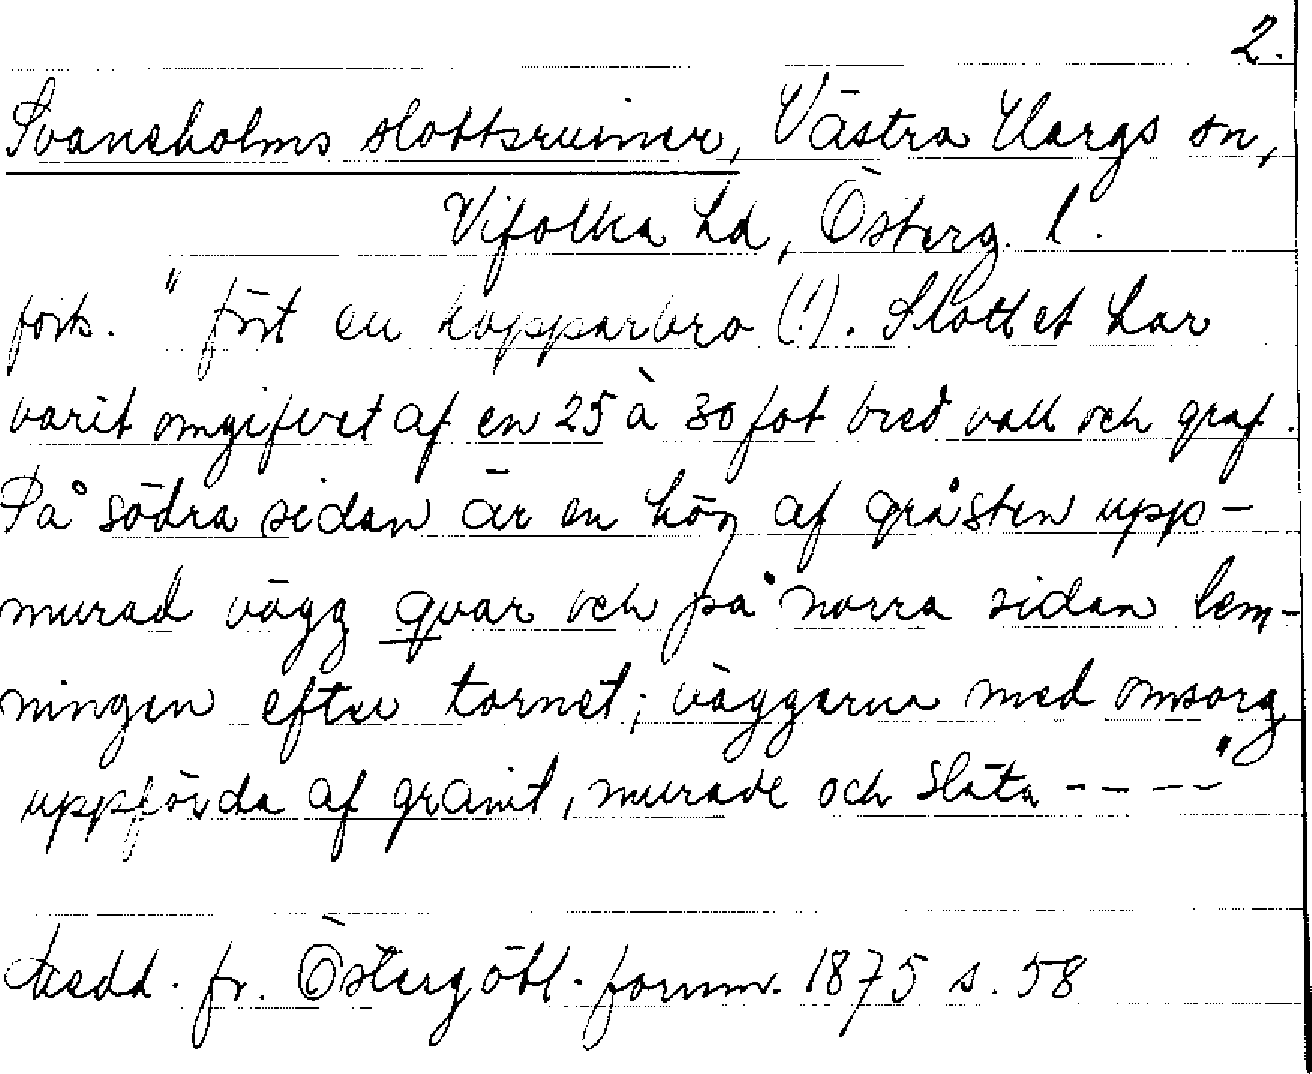 2.
Svaneholms slottsruiner, Västra Hargs sn,
Vifolka hd, Österg. l.
forts. " fört en kopparbro (!). Slottet har
varit omgifvet af en 25 à 30 fot bred vall och graf.
På södra sidan är en hög af gråsten upp-
murad vägg qvar och på norra sidan lem-
ningen efter tornet; väggarna med omsorg
uppförda af granit, murade och släta - - - - "
Medd. fr. Östergötl. fornm. 1875 s. 58